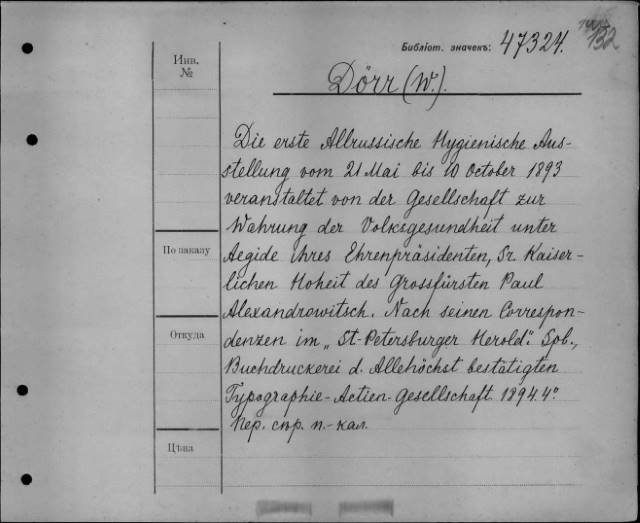 132
Библіот. значекъ: 47324.
Инв.
№
Dörr (W.).
Die erste Allrussische Hygienische Aus-
stellung vom 21 Mai bis 10 October 1893
veranstaltet von der Gesellschaft zur
Wahrung der Volksgesundheit unter
Aegide ihres Ehrenpräsidenten, Sr. Kaiser-
lichen Hoheit des Grossfürsten Paul
Alexandrowitsch. Nach seinen Correspon-
denzen im „St-Petersburger Herold". Spb.,
Buchdruckerei d. Allehöchst bestätigten
Typographie-Actien-Gesellschaft. 1894. 4°.
Пер. сѣр. п.-кал.
По заказу
Откуда
Цѣна